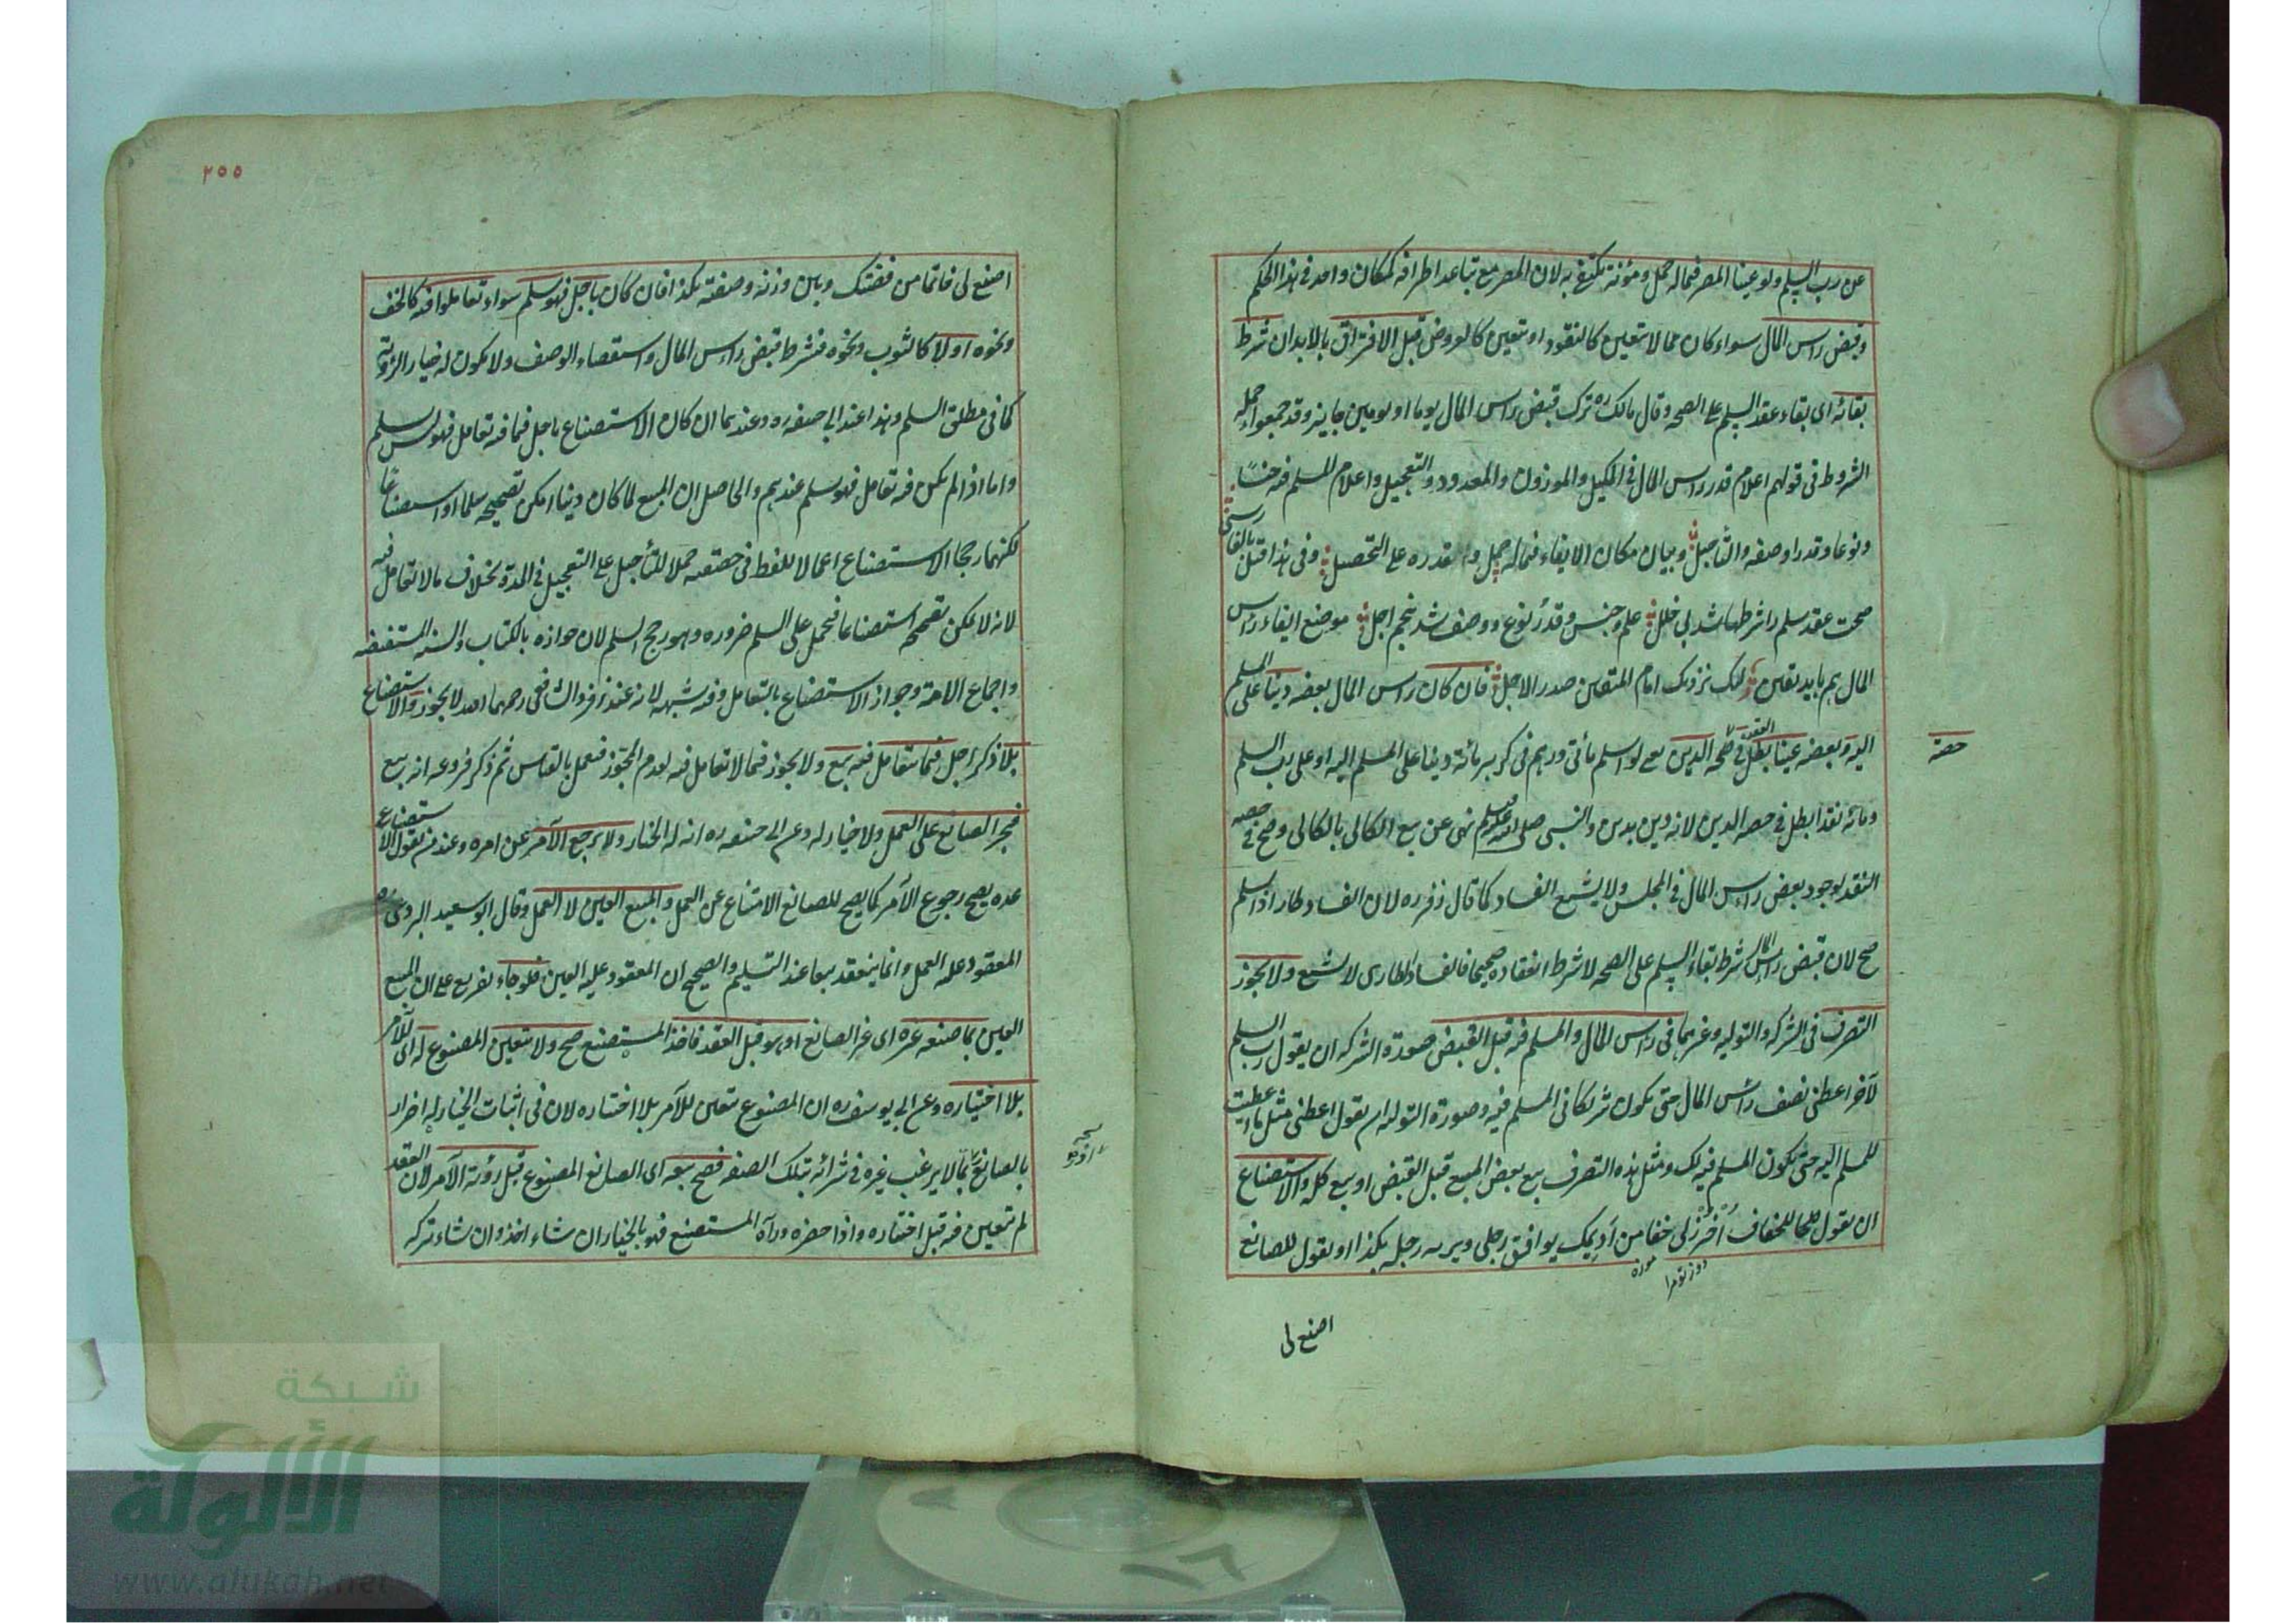 عن رب السلم ولو عينا المصر فيما له حمل ومؤنة يكتفى به لان المصر مع تباعد اطرافه كمكان واحد فى هذا الحكم
وقبض راس المال سواء كان مما لا يتعين كالنقود او يتعين كالعروض قبل الافتراق بالابدان شرط
بقائه اى بقاء عقد السلم على الصحه وقال مالك ره ترك قبض راس المال يوما او يومين جايز وقد جمعوا جمله
الشروط فى قولهم اعلام قدر راس المال فى المكيل والموزون والمعدود والتعجيل واعلام المسلم فيه جنسًا
ونوعا وقدرا وصفه والتأجيل وبيان مكان الايفاء فيما له حمل والقدره على التحصيل وفى هذا قيل بالفارسى
صحت عقد سلم را شرطها شد بى خلل علم جنس وقدر نوع ووصف شد پنجم اجل موضع ايفاء راس
المال هم بايد يقين ليك نزديك امام المتقين صدر الاجل فان كان راس المال بعضه دينا على المسلم
اليه وبعضه عينا بطل العقد فى حصه الدين حتى لو اسلم مأتى درهم فى كر بر مائة دينا على المسلم اليه او على رب السلم
ومائه نقد ابطل فى حصه الدين لانه دين بدين والنبى صلى الله عليه وسلم نهى عن بيع الكالى بالكالى وصح فى حصه
النقد لوجود بعض راس المال فى المجلس ولا يشيع الفساد كما قال زفر ره لان الفساد طار اذ السلم
صح لان قبض راس المال شرط بقاء السلم على الصحه لا شرط انعقاده صحيحا فالفساد الطارى لا يشيع ولا يجوز
التصرف فى الشركه والتوليه وغيرهما فى راس المال والمسلم فيه قبل القبض صورة الشركه ان يقول رب السلم
لآخر اعطنى نصف رأس المال حتى يكون شريكا فى المسلم فيه وصورة التوليه ان يقول اعطنى مثل ما اعطيت
للمسلم اليه حتى يكون المسلم فيه لك ومثل هذه التصرف بيع بعض المبيع قبل القبض او بيع كله والاستصناع
ان يقول للخفاف اُخْرُز لى خفا من اَدِيمك يوافق رجلى ويريه رجله بكذا او يقول للصانع
دوز تو مرا موزه
اصنع لى
حصة
٢٥٥
اصنع لى خاتما من فضتك وبين وزنه وصفته بكذا فان كان باجل فهو سلم سواء تعاملوا فيه كالخف
ونحوه او لا كالثوب ونحوه فيشرط قبض راس المال واستقصاء الوصف ولا يكون له خيار الرؤية
كما فى مطلق السلم وهذا عند ابى حنيفه ره وعندهما ان كان الاستصناع باجل فيما فيه تعامل فهو ليس بسلم
واما اذا لم يكن فيه تعامل فهو سلم عندهم والحاصل ان المبيع لما كان دينا امكن تصحيحه سلما او استصناعًا
لكنهما رجحا الاستصناع اعمالا للفظ فى حقيقته حملا للتأجيل على التعجيل فى المدة بخلاف ما لا تعامل فيه
لانه لا يمكن تصحيحه استصناعا فيحمل على السلم ضروره وهو رجح السلم لان جوازه بالكتاب والسنه المستفيضه
واجماع الامة وجواز الاستصناع بالتعامل وفيه شبهه لانه عند زفر والشافعى رحمهما الله لا يجوز والاستصناع
بلا ذكر اجل فيما يتعامل فيه بيع ولا يجوز فيما لا تعامل فيه لعدم المجوز فيعمل بالقياس ثم ذكر فروعه انه بيع
فيجبر الصانع على العمل ولا خيار له وعن ابى حنيفه ره انه له الخيار ولا يرجع الآمر عن امره وعند من يقول الاستصناع
عده يصح رجوع الآمر كما يصح للصانع الامتناع عن العمل والمبيع العين لا العمل وقال ابو سعيد البردعى ره
المعقود عليه العمل وانما ينعقد بيعا عند التسليم والصحيح ان المعقود عليه العين فلو جاء تفريع على ان المبيع
العين بما صنعه غيره اى غير الصانع او هو قبل العقد فاخذ المستصنع صح ولا يتعين المصنوع له اى للآمر
بلا اختياره وعن ابى يوسف ره ان المصنوع يتعين للآمر بلا اختياره لان فى اثبات الخيار له اضرار
بالصانع ربما لا يرغب غيره فى شرائه بتلك الصفه فصح بيعه اى الصانع المصنوع قبل رؤية الآمر لان العقد
لم يتعين فيه قبل اختياره واذا حضره ورآه المستصنع فهو بالخيار ان شاء اخذ وان شاء تركه
شبكة
الألوكة
www.alukah.net